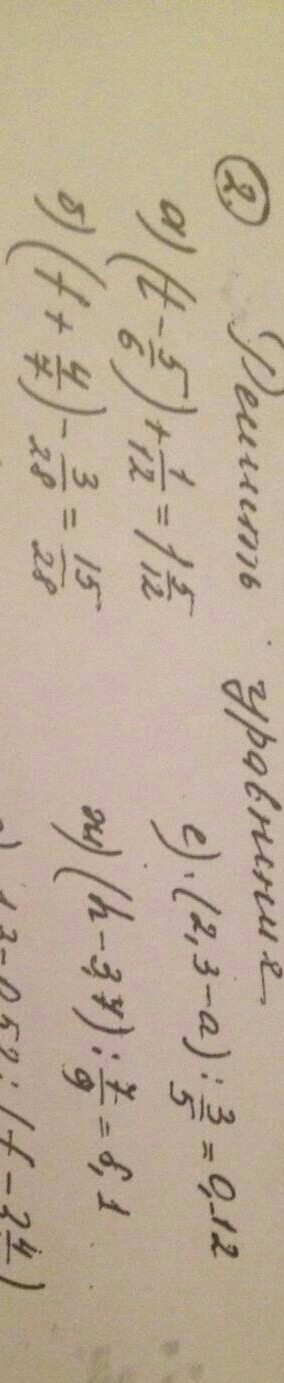 2. Решить уравнения
а) (t - 5/6) + 1/12 = 1 5/12
б) (f + 4/7) - 3/28 = 15/28
е) (2,3 - a) : 3/5 = 0,12
ж) (h - 3,7) : 7/9 = 8,1
0,52 : (f - 2 4/